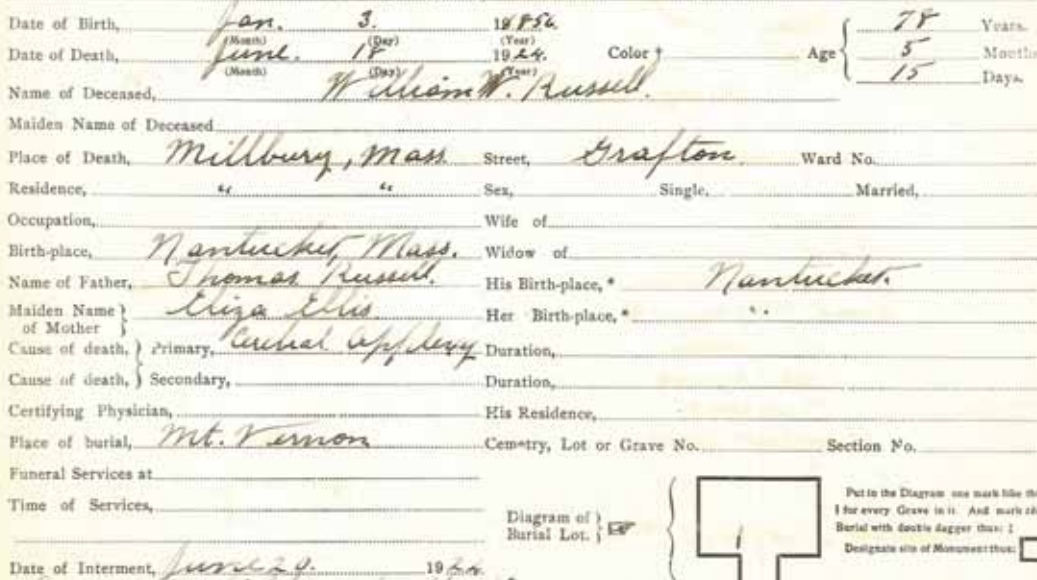 Date of Birth, Jan. 3. 1856. 78 Years.
(Month) (Day) (Year)
Date of Death, June. 18 1924. Color † Age 5 Months
(Month) (Day) (Year) 15 Days.
Name of Deceased, William W. Russell.
Maiden Name of Deceased
Place of Death, Millbury, Mass Street, Grafton Ward No.
Residence, " " Sex, Single, Married,
Occupation, Wife of
Birth-place, Nantucket, Mass. Widow of
Name of Father, Thomas Russell. His Birth-place,* Nantucket.
Maiden Name of Mother } Eliza Ellis. Her Birth-place,* "
Cause of death, } Primary, Cerebral Duration,
Cause of death, } Secondary, Duration,
Certifying Physician, His Residence,
Place of burial, Mt. Vernon Cemetry, Lot or Grave No. Section No.
Funeral Services at
Time of Services,
Diagram of Burial Lot. }
Put in the Diagram one mark like th
1 for every Grave in it. And mark
Burial with double dagger thus: ‡
Designate site of Monument thus:
Date of Interment, June 20. 19